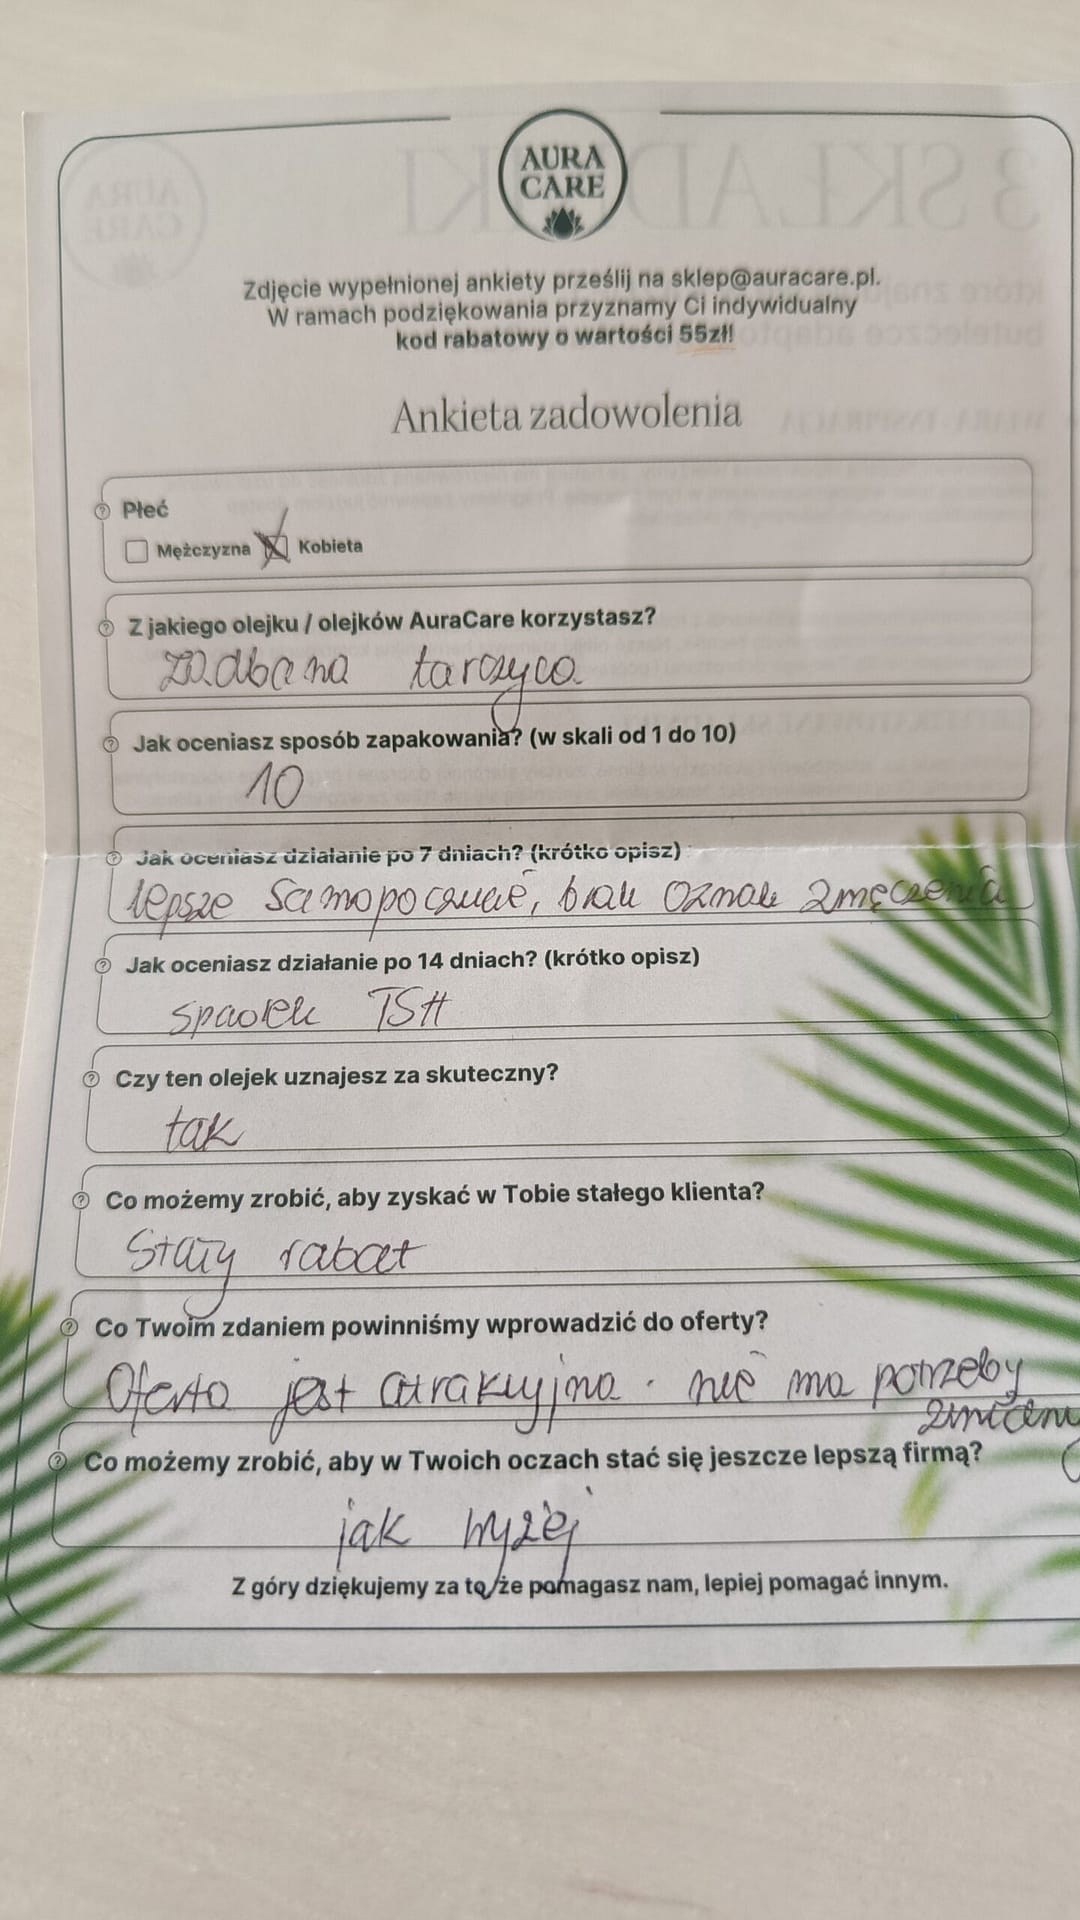 AURA
CARE
Zdjęcie wypełnionej ankiety prześlij na sklep@auracare.pl.
W ramach podziękowania przyznamy Ci indywidualny
kod rabatowy o wartości 55zł!
Ankieta zadowolenia
Płeć
Mężczyzna Kobieta
Z jakiego olejku / olejków AuraCare korzystasz?
zadbana tarczyca
Jak oceniasz sposób zapakowania? (w skali od 1 do 10)
10
Jak oceniasz działanie po 7 dniach? (krótko opisz)
lepsze samopoczucie, brak oznak zmęczenia
Jak oceniasz działanie po 14 dniach? (krótko opisz)
spadek TSH
Czy ten olejek uznajesz za skuteczny?
tak
Co możemy zrobić, aby zyskać w Tobie stałego klienta?
Stały rabat
Co Twoim zdaniem powinniśmy wprowadzić do oferty?
Oferta jest atrakcyjna. nie ma potrzeby
zmiany
Co możemy zrobić, aby w Twoich oczach stać się jeszcze lepszą firmą?
jak wyżej
Z góry dziękujemy za to, że pomagasz nam, lepiej pomagać innym.